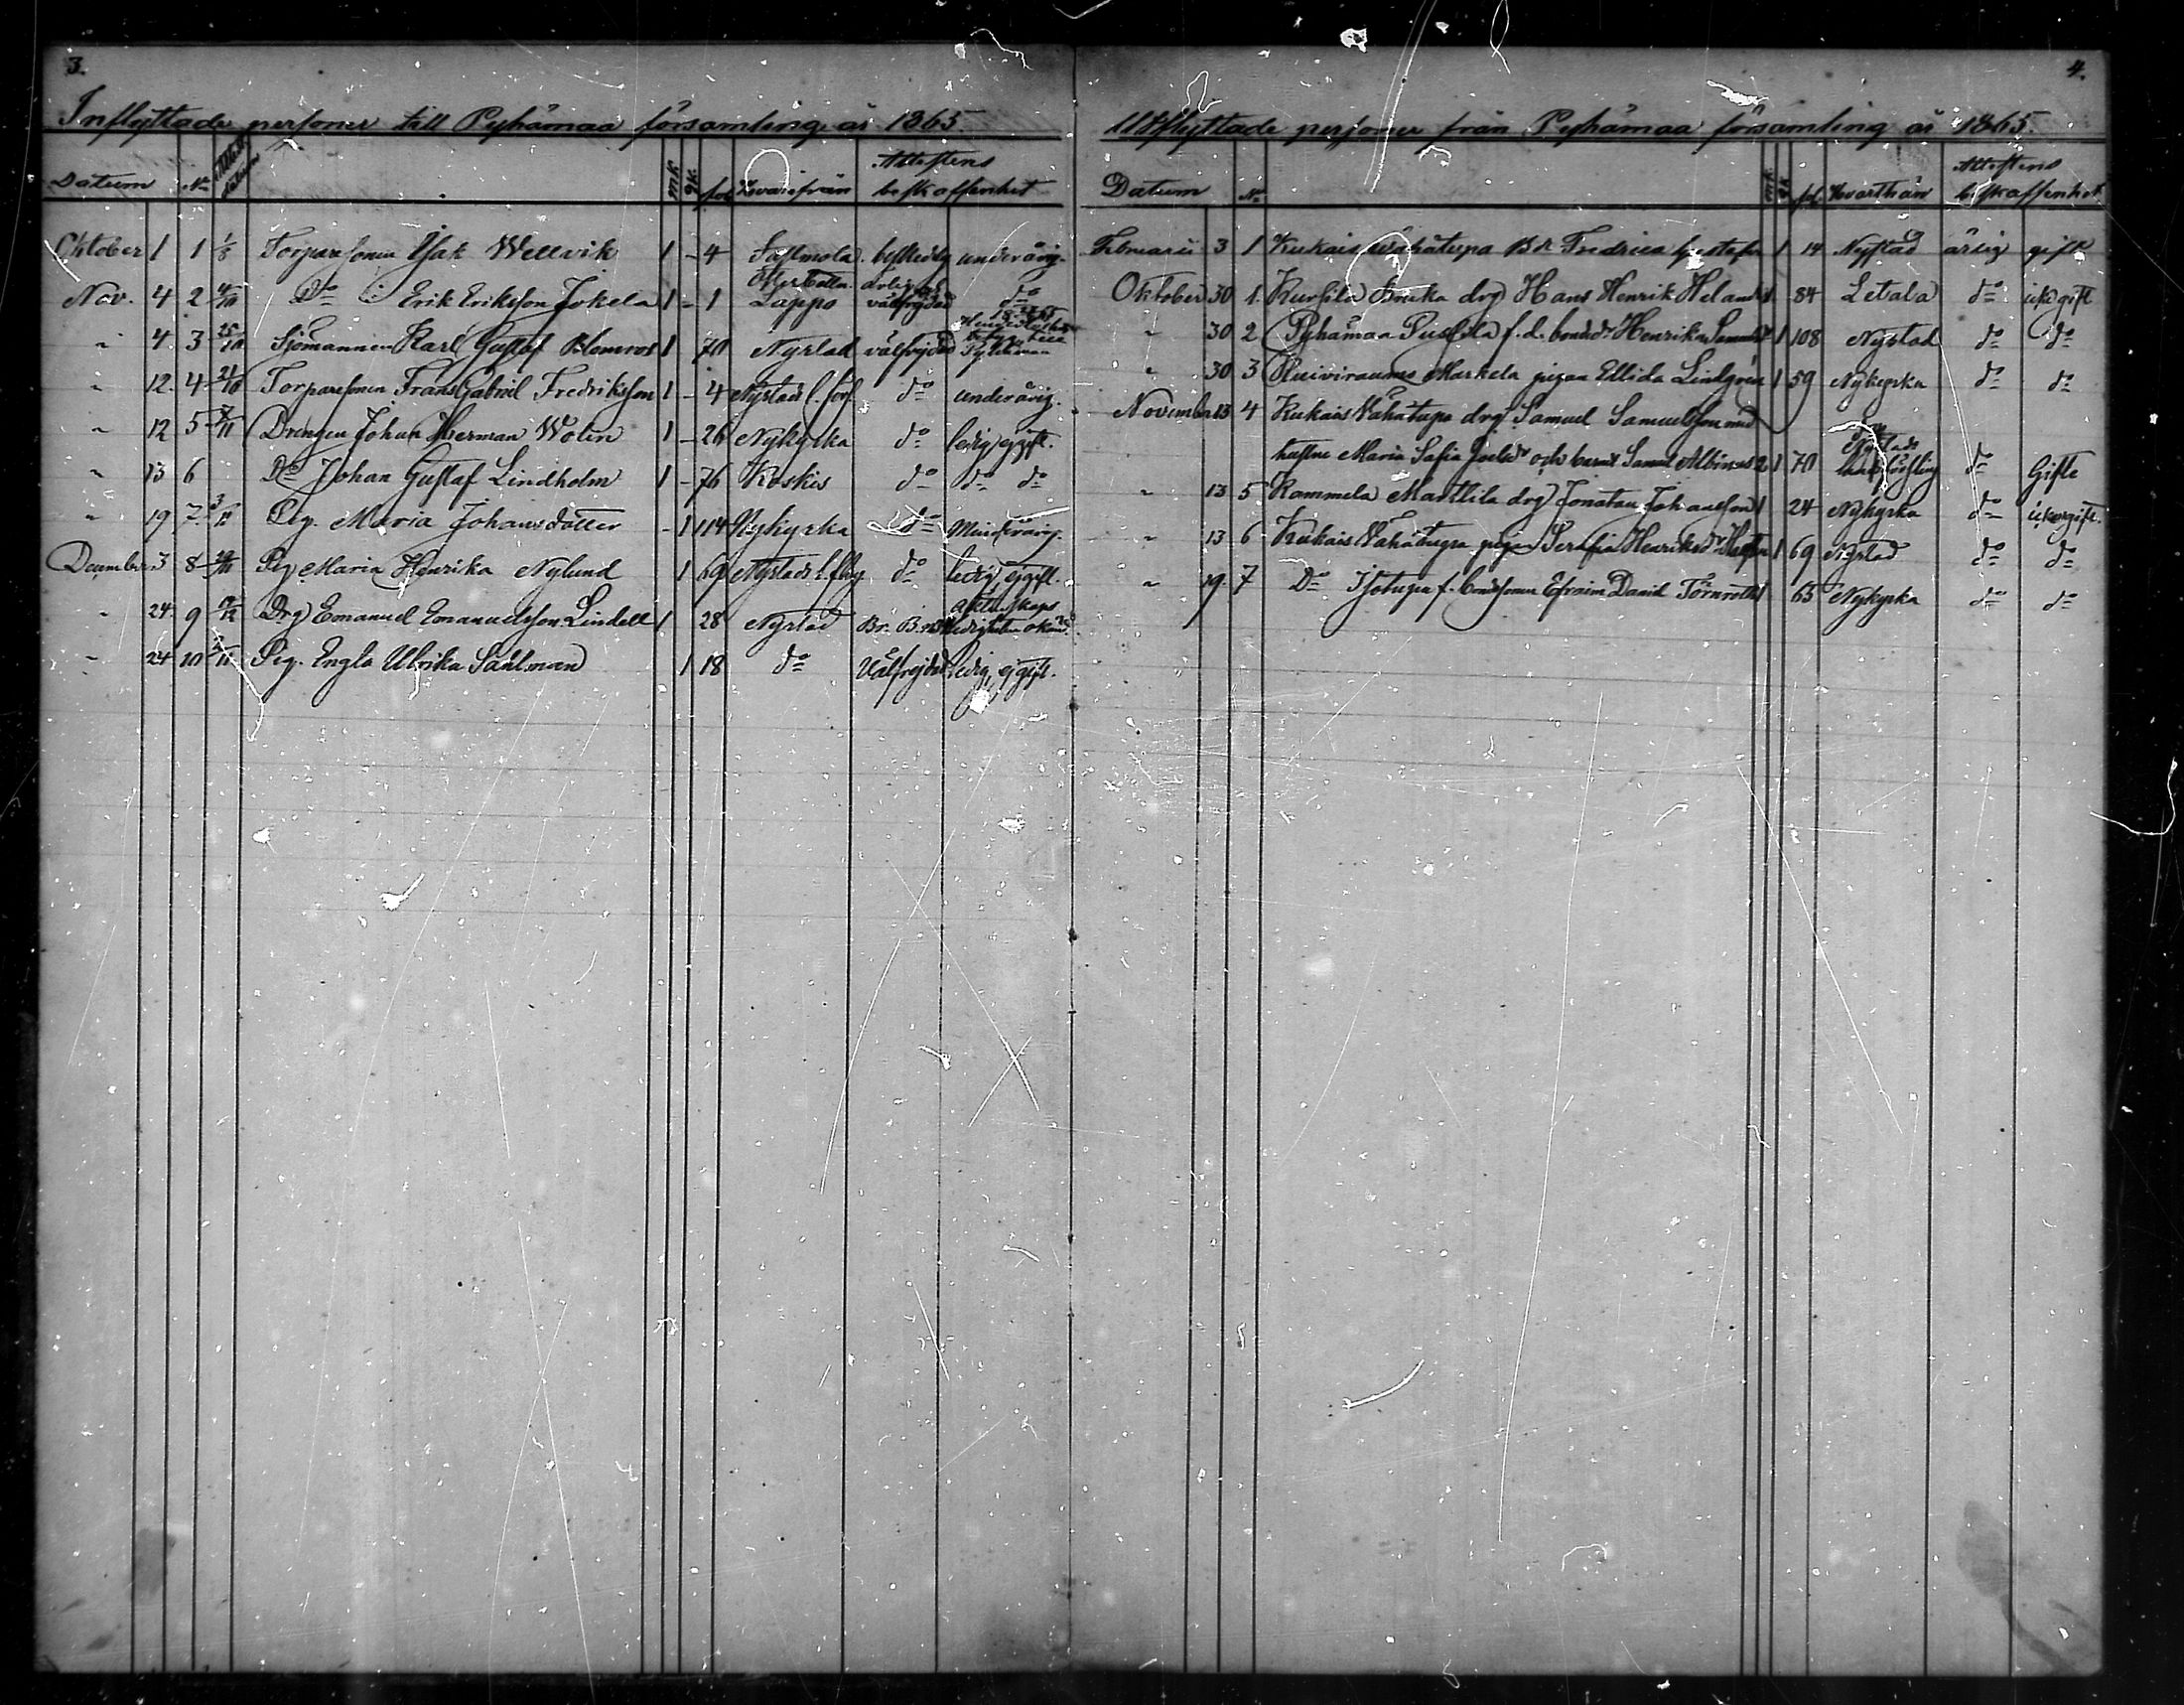 3.
Inflyttade personer till Pyhämaa församling år 1865.
Datum No Attest. datum mk qk. fol Hvarifrån Attestens beskaffenhet
Oktober 1 1 1/8 Torparesonen Isak Wellvik 1 - 4 beskedlig underårig
Nov. 4 2 Do Erik Eriksson Jokela 1 - 1 Österbotten Lappo välfrejdad do
" 4. 3 25/10 Sjömannen Karl Gustaf Blomros 1 70 Nystad välfrejdad
" 12. 4 24/10 Torparesonen Frans Gabriel Fredriksson 1 - 4 Nystads l. förs. do underårig.
" 12 5 Drengen Johan Herman Wolin 1 - 26 Nykyrka do ledig ej gift.
" 13 6 Do Johan Gustaf Lindholm 1 - 76 Koskis do do do
" 19 7 Pig. Maria Johansdotter - 1 114 Nykyrka do Minderårig.
December 3 8 Pig Maria Henrika Nylund 1 69 Nystads l. flg do ledig ej gift.
" 24. 9 Drg Emanuel Emanuelsson Lindell 1 28 Nystad äktenskaps ledigheten okänd.
" 24 10 Pig. Engla Ulrika Sahlman 1 18 do Välfrejdad ledig, ej gift.
4.
Utflyttade personer från Pyhämaa församling år 1865.
Datum No mk qk fol. Hvarthän Attestens beskaffenhet
Februarii 3 1 Kukais Wähätupa Fredrica 1 14 Nystad ärlig gift
Oktober 30 1. Kursila drg Hans Henrik Helander 84 Letala do icke gift
" 30 2 Pyhämaa f. d. Henrika 1 108 Nystad do do
" 30 3 Markela pigan Ellida Lindgren 1 59 Nykyrka do do
November 13 4 Kukais Vähätupa drg Samuel Samuelsson med
hustru Maria Sofia och barnet Samuel Albinus 2 1 70 Nystads do Gifte
" 13 5 Kammela Marttila drg Jonatan Johansson 1 24 Nykyrka do icke gift.
" 13 6 Kukais Vähätupa pigan Serafia Henriksdr 1 69 Nystad do do
" 19. 7 Do f. bondsonen Efraim Daniel Törnroth 1 63 Nykyrka do do